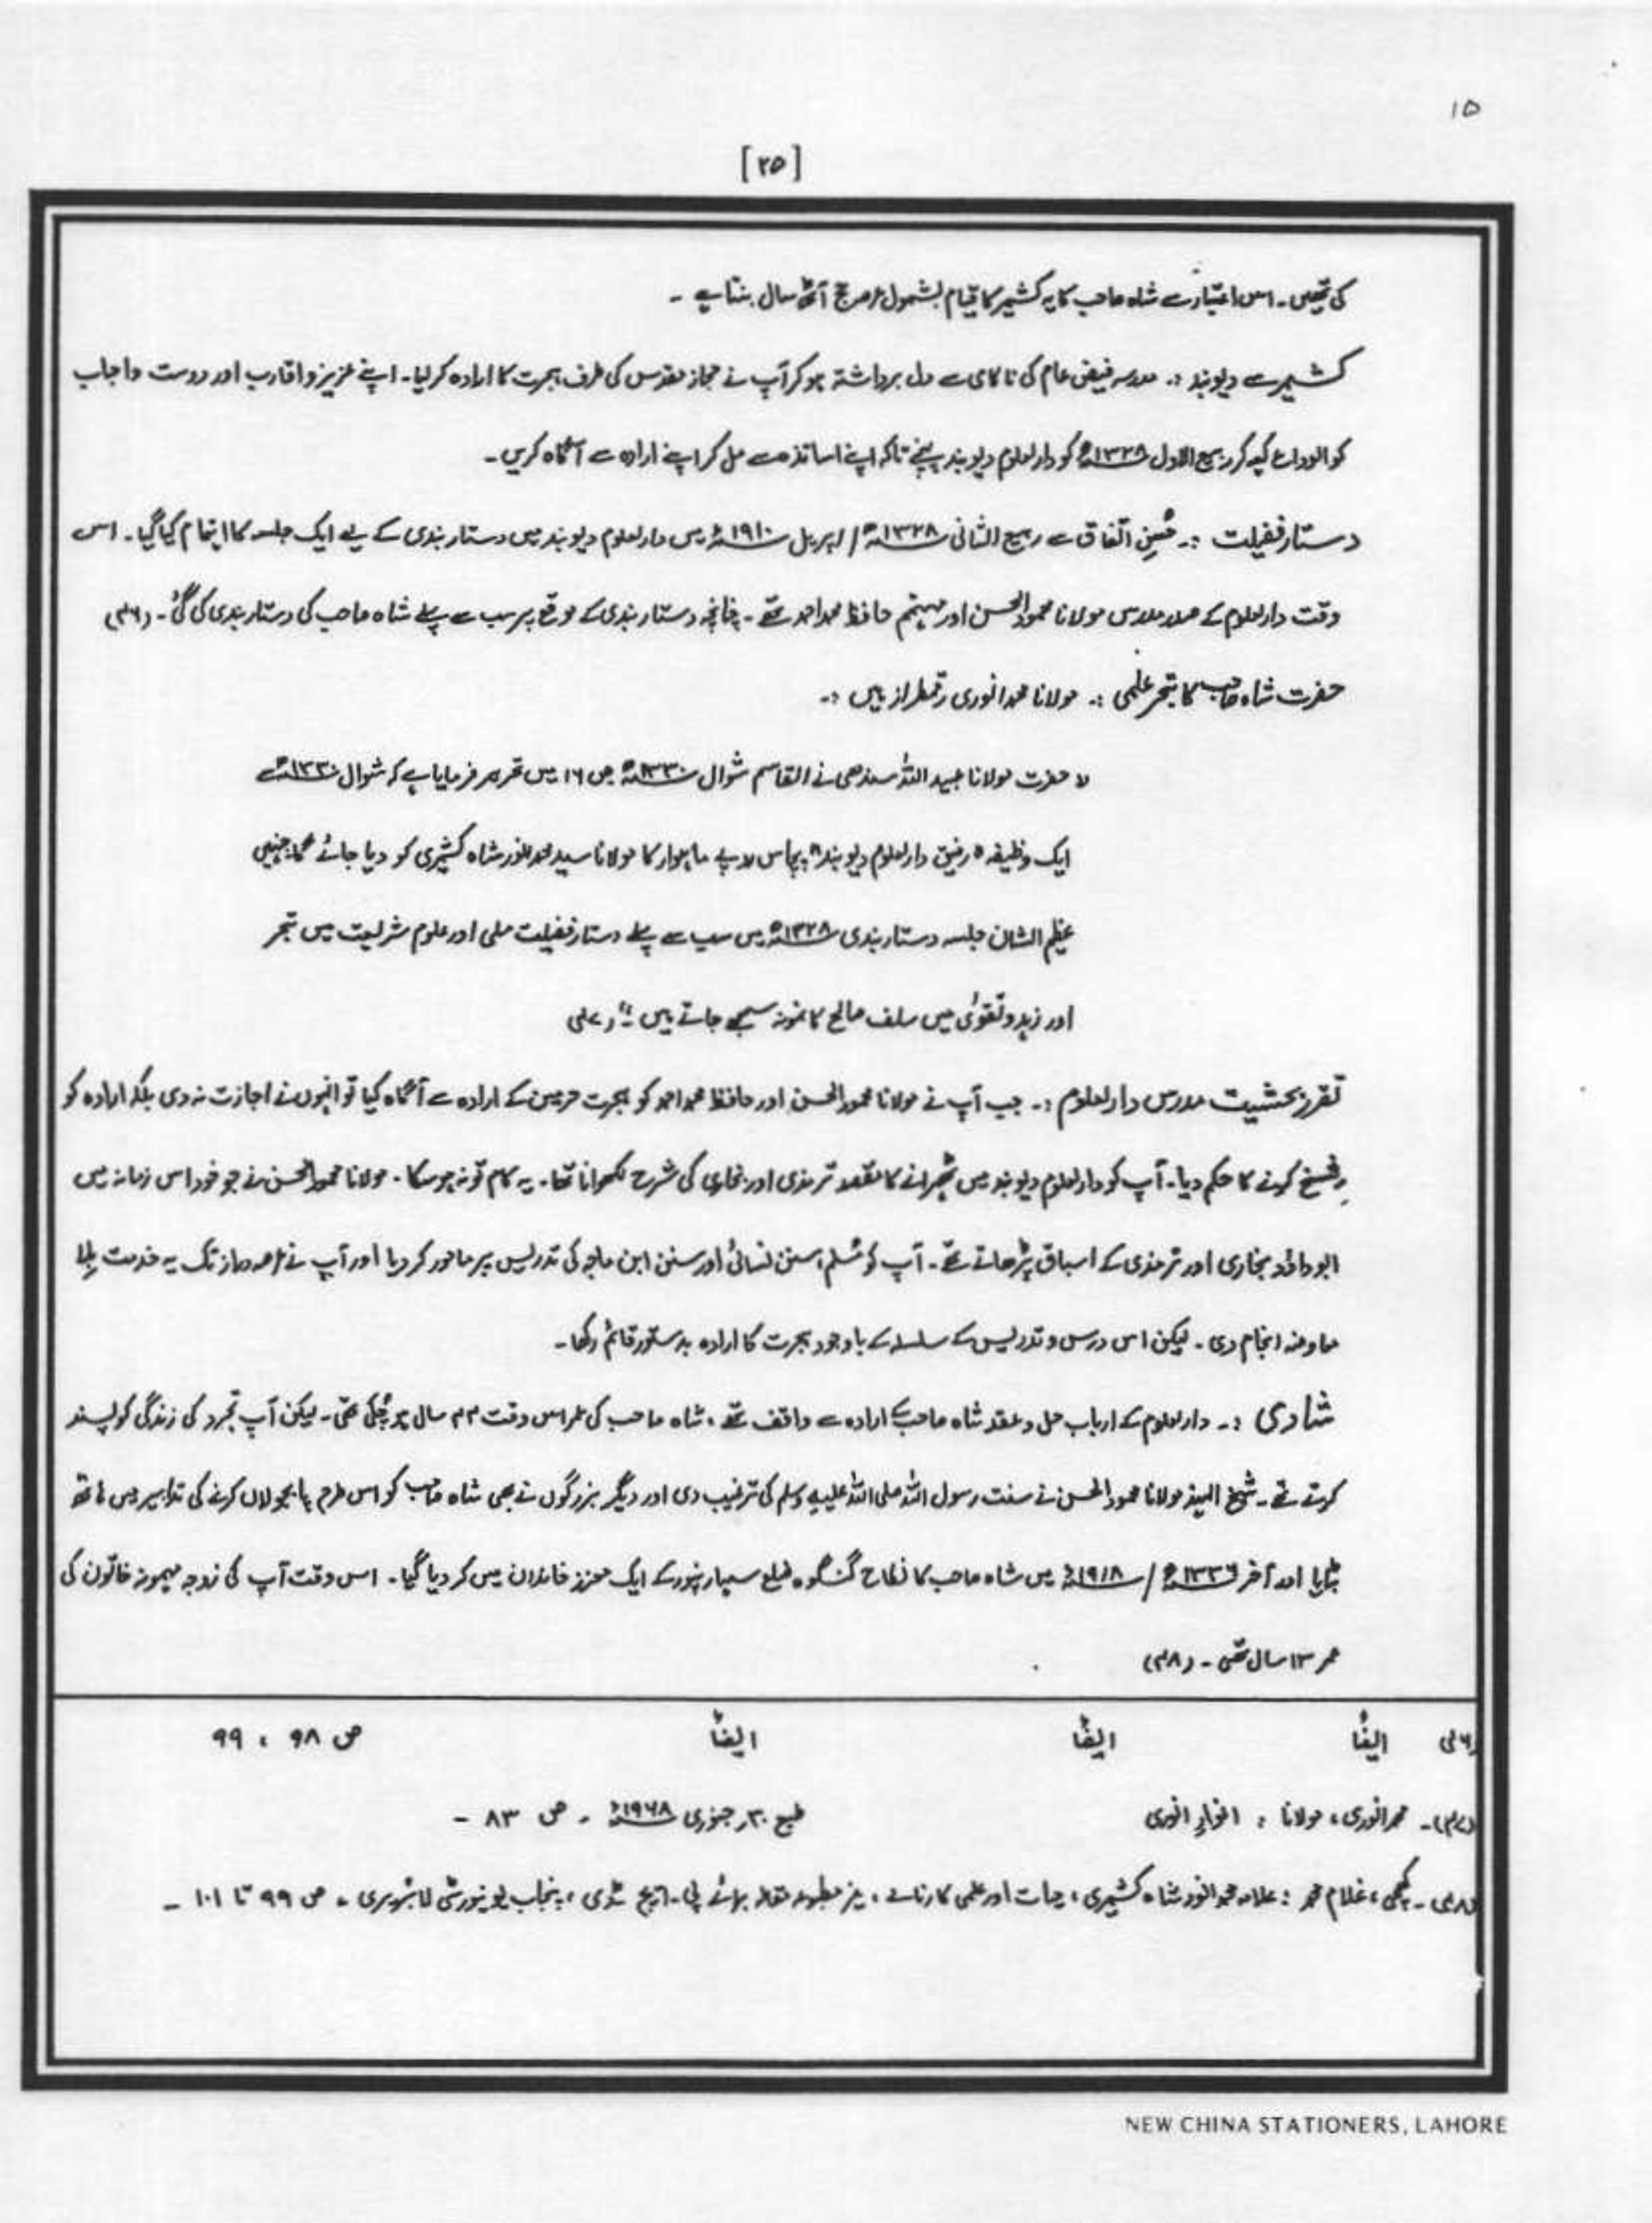 ۱۵
[۲۵]
کی تھیں۔ اس اعتبار سے شاہ صاحب کا یہ کشمیر کا قیام بشمول عرصہ حج آٹھ سال بنتا ہے ۔
کشمیر سے دیوبند :۔ مدرسہ فیض عام کی ناکامی سے دل برداشتہ ہو کر آپ نے حجاز مقدس کی طرف ہجرت کا ارادہ کر لیا۔ اپنے عزیز و اقارب اور دوست و احباب
کو الوداع کہہ کر ربیع الاول ۱۳۲۸ھ کو دارالعلوم دیوبند پہنچے تاکہ اپنے اساتذہ سے مل کر اپنے ارادہ سے آگاہ کریں ۔
دستار فضیلت :۔ حُسنِ اتفاق سے ربیع الثانی ۱۳۲۸ھ / اپریل ۱۹۱۰ء میں دارالعلوم دیوبند میں دستار بندی کے لیے ایک جلسہ کا اہتمام کیا گیا۔ اس
وقت دارالعلوم کے صدر مدرس مولانا محمود الحسن اور مہتمم حافظ محمد احمد تھے ۔ چنانچہ دستار بندی کے موقع پر سب سے پہلے شاہ صاحب کی دستار بندی کی گئی ۔ (۳۶)
حضرت شاہ صاحب کا تبحر علمی :۔ مولانا محمد انوری رقمطراز ہیں :۔
" حضرت مولانا عبید اللہ سندھی نے القاسم شوال ۱۳۳۰ھ ص ۱۶ میں تحریر فرمایا ہے کہ شوال ۱۳۳۰ھ سے
ایک وظیفہ "رفیق دارالعلوم دیوبند" پچاس روپے ماہوار کا مولانا سید محمد انور شاہ کشمیری کو دیا جائے گا جنہیں
عظیم الشان جلسہ دستار بندی ۱۳۲۸ھ میں سب سے پہلے دستار فضیلت ملی اور علوم شریعت میں تبحر
اور زہد و تقویٰ میں سلف صالح کا نمونہ سمجھے جاتے ہیں ۔" (۳۷)
تقرر بحیثیت مدرس دارالعلوم :۔ جب آپ نے مولانا محمود الحسن اور حافظ محمد احمد کو ہجرت حرمین کے ارادہ سے آگاہ کیا تو انہوں نے اجازت نہ دی بلکہ ارادہ کو
فسخ کرنے کا حکم دیا۔ آپ کو دارالعلوم دیوبند میں ٹھہرانے کا مقصد ترمذی اور بخاری کی شرح لکھوانا تھا۔ یہ کام تو نہ ہو سکا۔ مولانا محمود الحسن نے جو خود اس زمانہ میں
ابو داؤد بخاری اور ترمذی کے اسباق پڑھاتے تھے ۔ آپ کو مُسلم، سنن نسائی اور سنن ابن ماجہ کی تدریس پر مامور کر دیا اور آپ نے عرصہ دراز تک یہ خدمت بلا
معاوضہ انجام دی ۔ لیکن اس درس و تدریس کے سلسلہ کے باوجود ہجرت کا ارادہ بدستور قائم رکھا ۔
شادی :۔ دارالعلوم کے ارباب حل و عقد شاہ صاحب کے ارادہ سے واقف تھے ، شاہ صاحب کی عمر اس وقت ۴۴ سال ہو چکی تھی ۔ لیکن آپ تجرد کی زندگی کو پسند
کرتے تھے ۔ شیخ الہند مولانا محمود الحسن نے سنت رسول اللہ صلی اللہ علیہ وسلم کی ترغیب دی اور دیگر بزرگوں نے بھی شاہ صاحب کو اس طرح پابجولاں کرنے کی تدابیر میں ہاتھ
بٹایا اور آخر ۱۳۳۶ھ / ۱۹۱۸ء میں شاہ صاحب کا نکاح گنگوہ ضلع سہارنپور کے ایک معزز خاندان میں کر دیا گیا۔ اس وقت آپ کی زوجہ میمونہ خاتون کی
عمر ۱۳ سال تھی ۔ (۳۸)
(۳۶) ایضاً ایضاً ایضاً ص ۹۸ ، ۹۹
(۳۷)۔ محمد انوری، مولانا : انوارِ انوری طبع ۳۰ر جنوری ۱۹۶۸ء ۔ ص ۸۳ ۔
(۳۸) ۔ غلام محمد : علامہ محمد انور شاہ کشمیری، حیات اور علمی کارنامے ، غیر مطبوعہ مقالہ برائے پی۔ایچ ڈی ، پنجاب یونیورسٹی لائبریری ۔ ص ۹۹ تا ۱۰۱ ۔
NEW CHINA STATIONERS, LAHORE